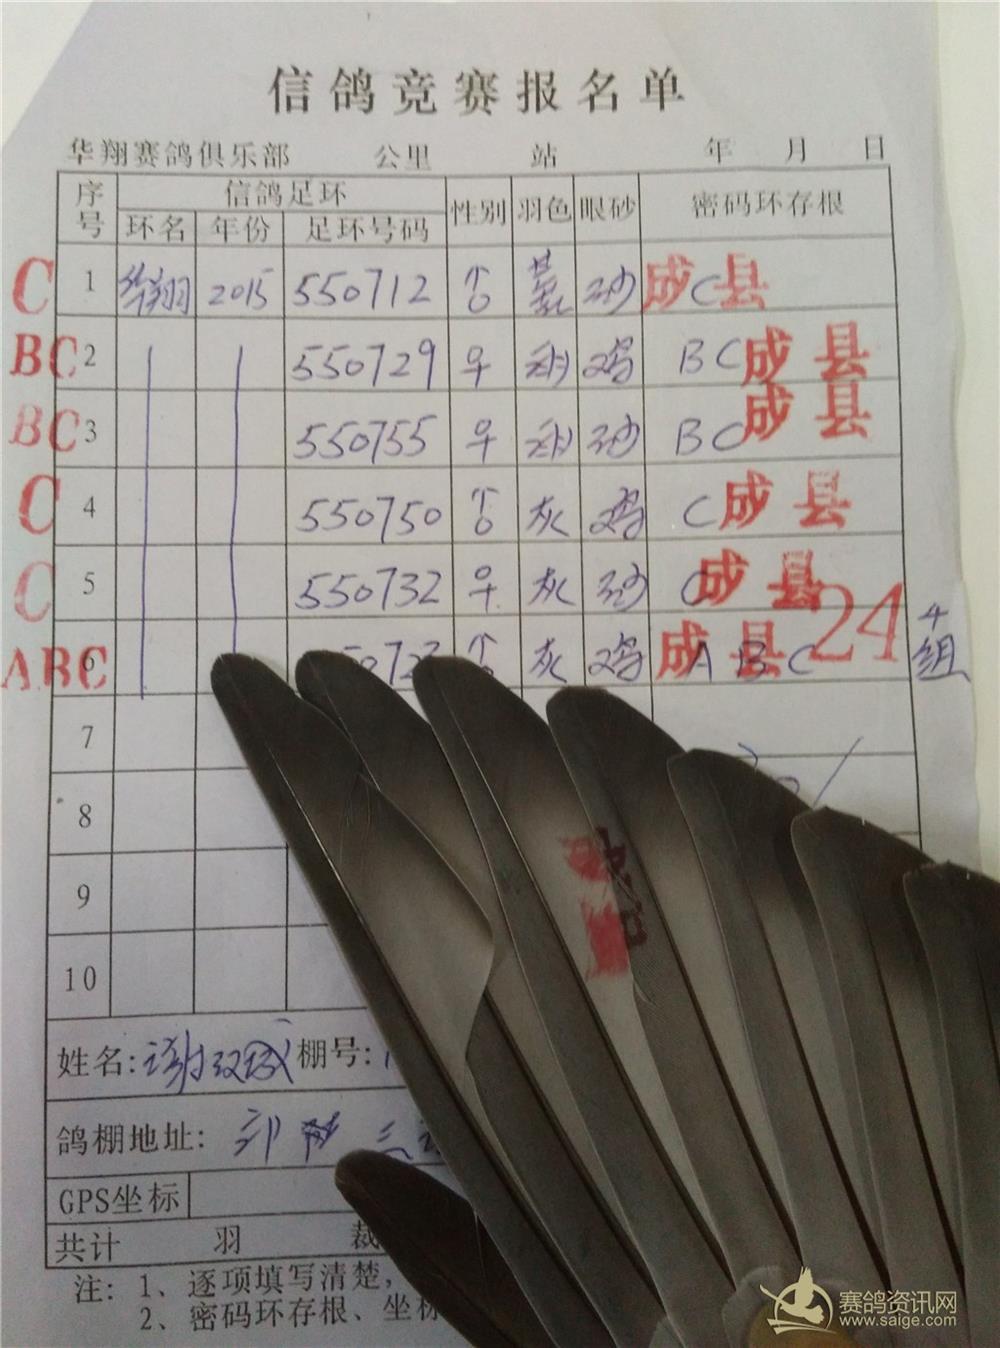 信鸽竞赛报名单
华翔赛鸽俱乐部 公里 站 年 月 日
序号 信鸽足环 性别 羽色 眼砂 密码环存根
环名 年份 足环号码
C 1 华翔 2015 550712 ♂ 砂 C 成县
BC 2 550729 ♀ 鸡 BC 成县
BC 3 550755 ♀ 砂 BC 成县
C 4 550750 ♂ 灰 鸡 C 成县
C 5 550732 ♀ 灰 砂 C 成县
ABC 6 ♂ 灰 鸡 ABC 成县 24 4组
7
8
9
10
姓名: 谢双成 棚号:
鸽棚地址:
GPS坐标
共计 羽 裁
注: 1、逐项填写清楚,
2、密码环存根、坐标
赛鸽资讯网
www.saige.com